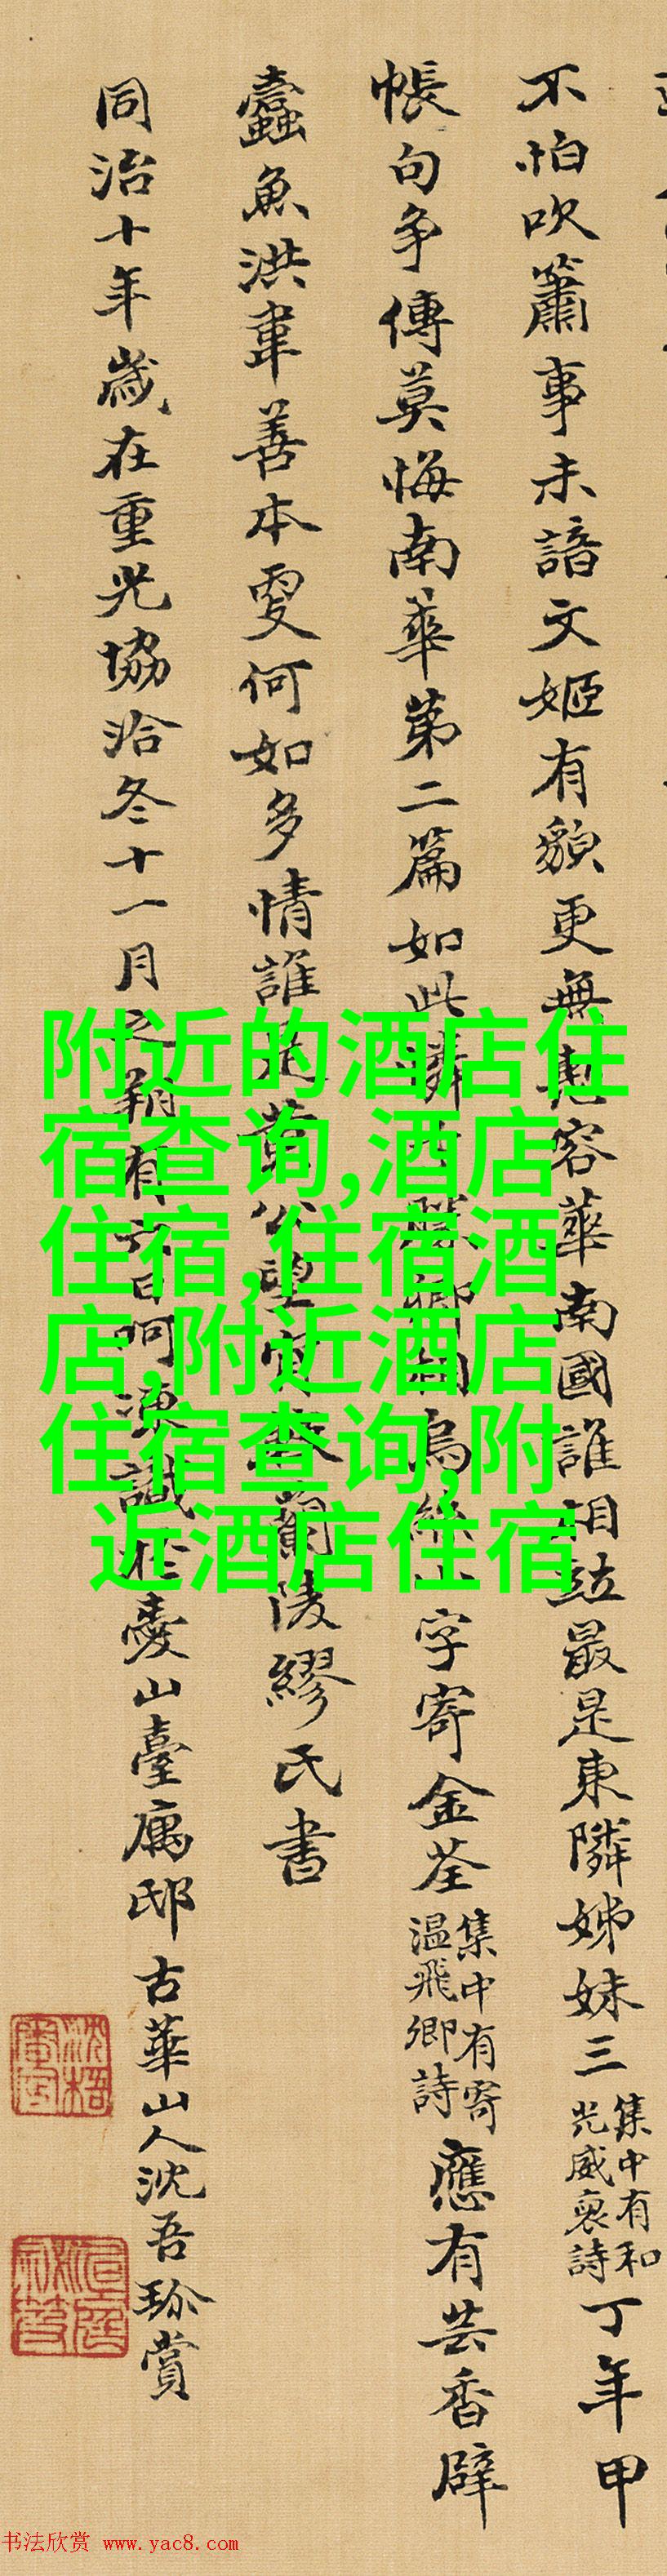 不怕吹簫事未諳文姬有貌更無容華南國誰相竝最是東隣姊妹三
集中有和
光威裒詩
丁年甲
帳句争傳莫悔南華第二篇如此烏絲字寄金荃
集中有寄
温飛卿詩
應有芸香辟
蠹魚洪韋善本叓何如多情誰是黄公望蘭陵繆氏書
同治十年歲在重光協洽冬十一月之朔有六日呵凍識於愛山臺寓邸古華山人沈吾珎賞
附近的酒店住
宿查询,酒店
住宿,住宿酒
店,附近酒店
住宿查询,附
近酒店住宿
书法欣赏 www.yac8.com